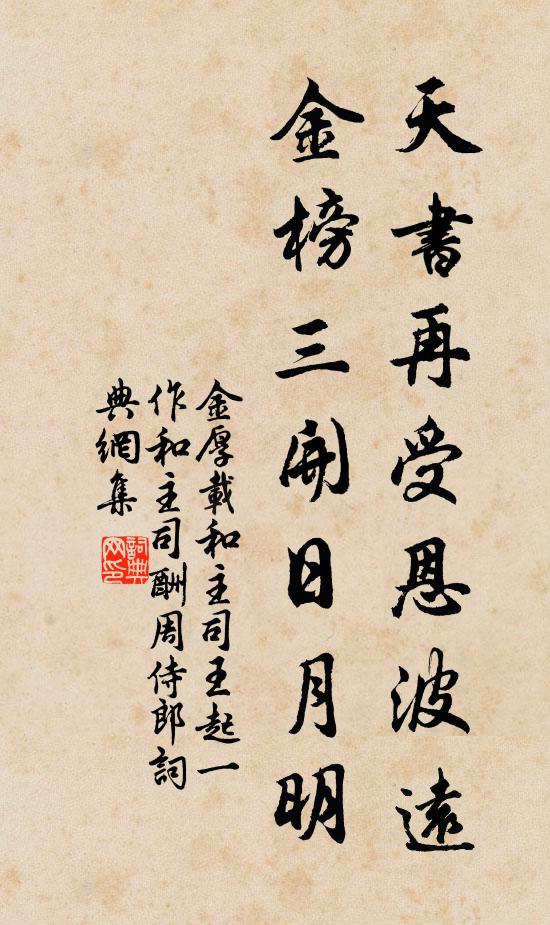 天書再受恩波遠
金榜三開日月明
金厚載和主司王起一
作和主司酬周侍郎詞
典網集
詞典網印